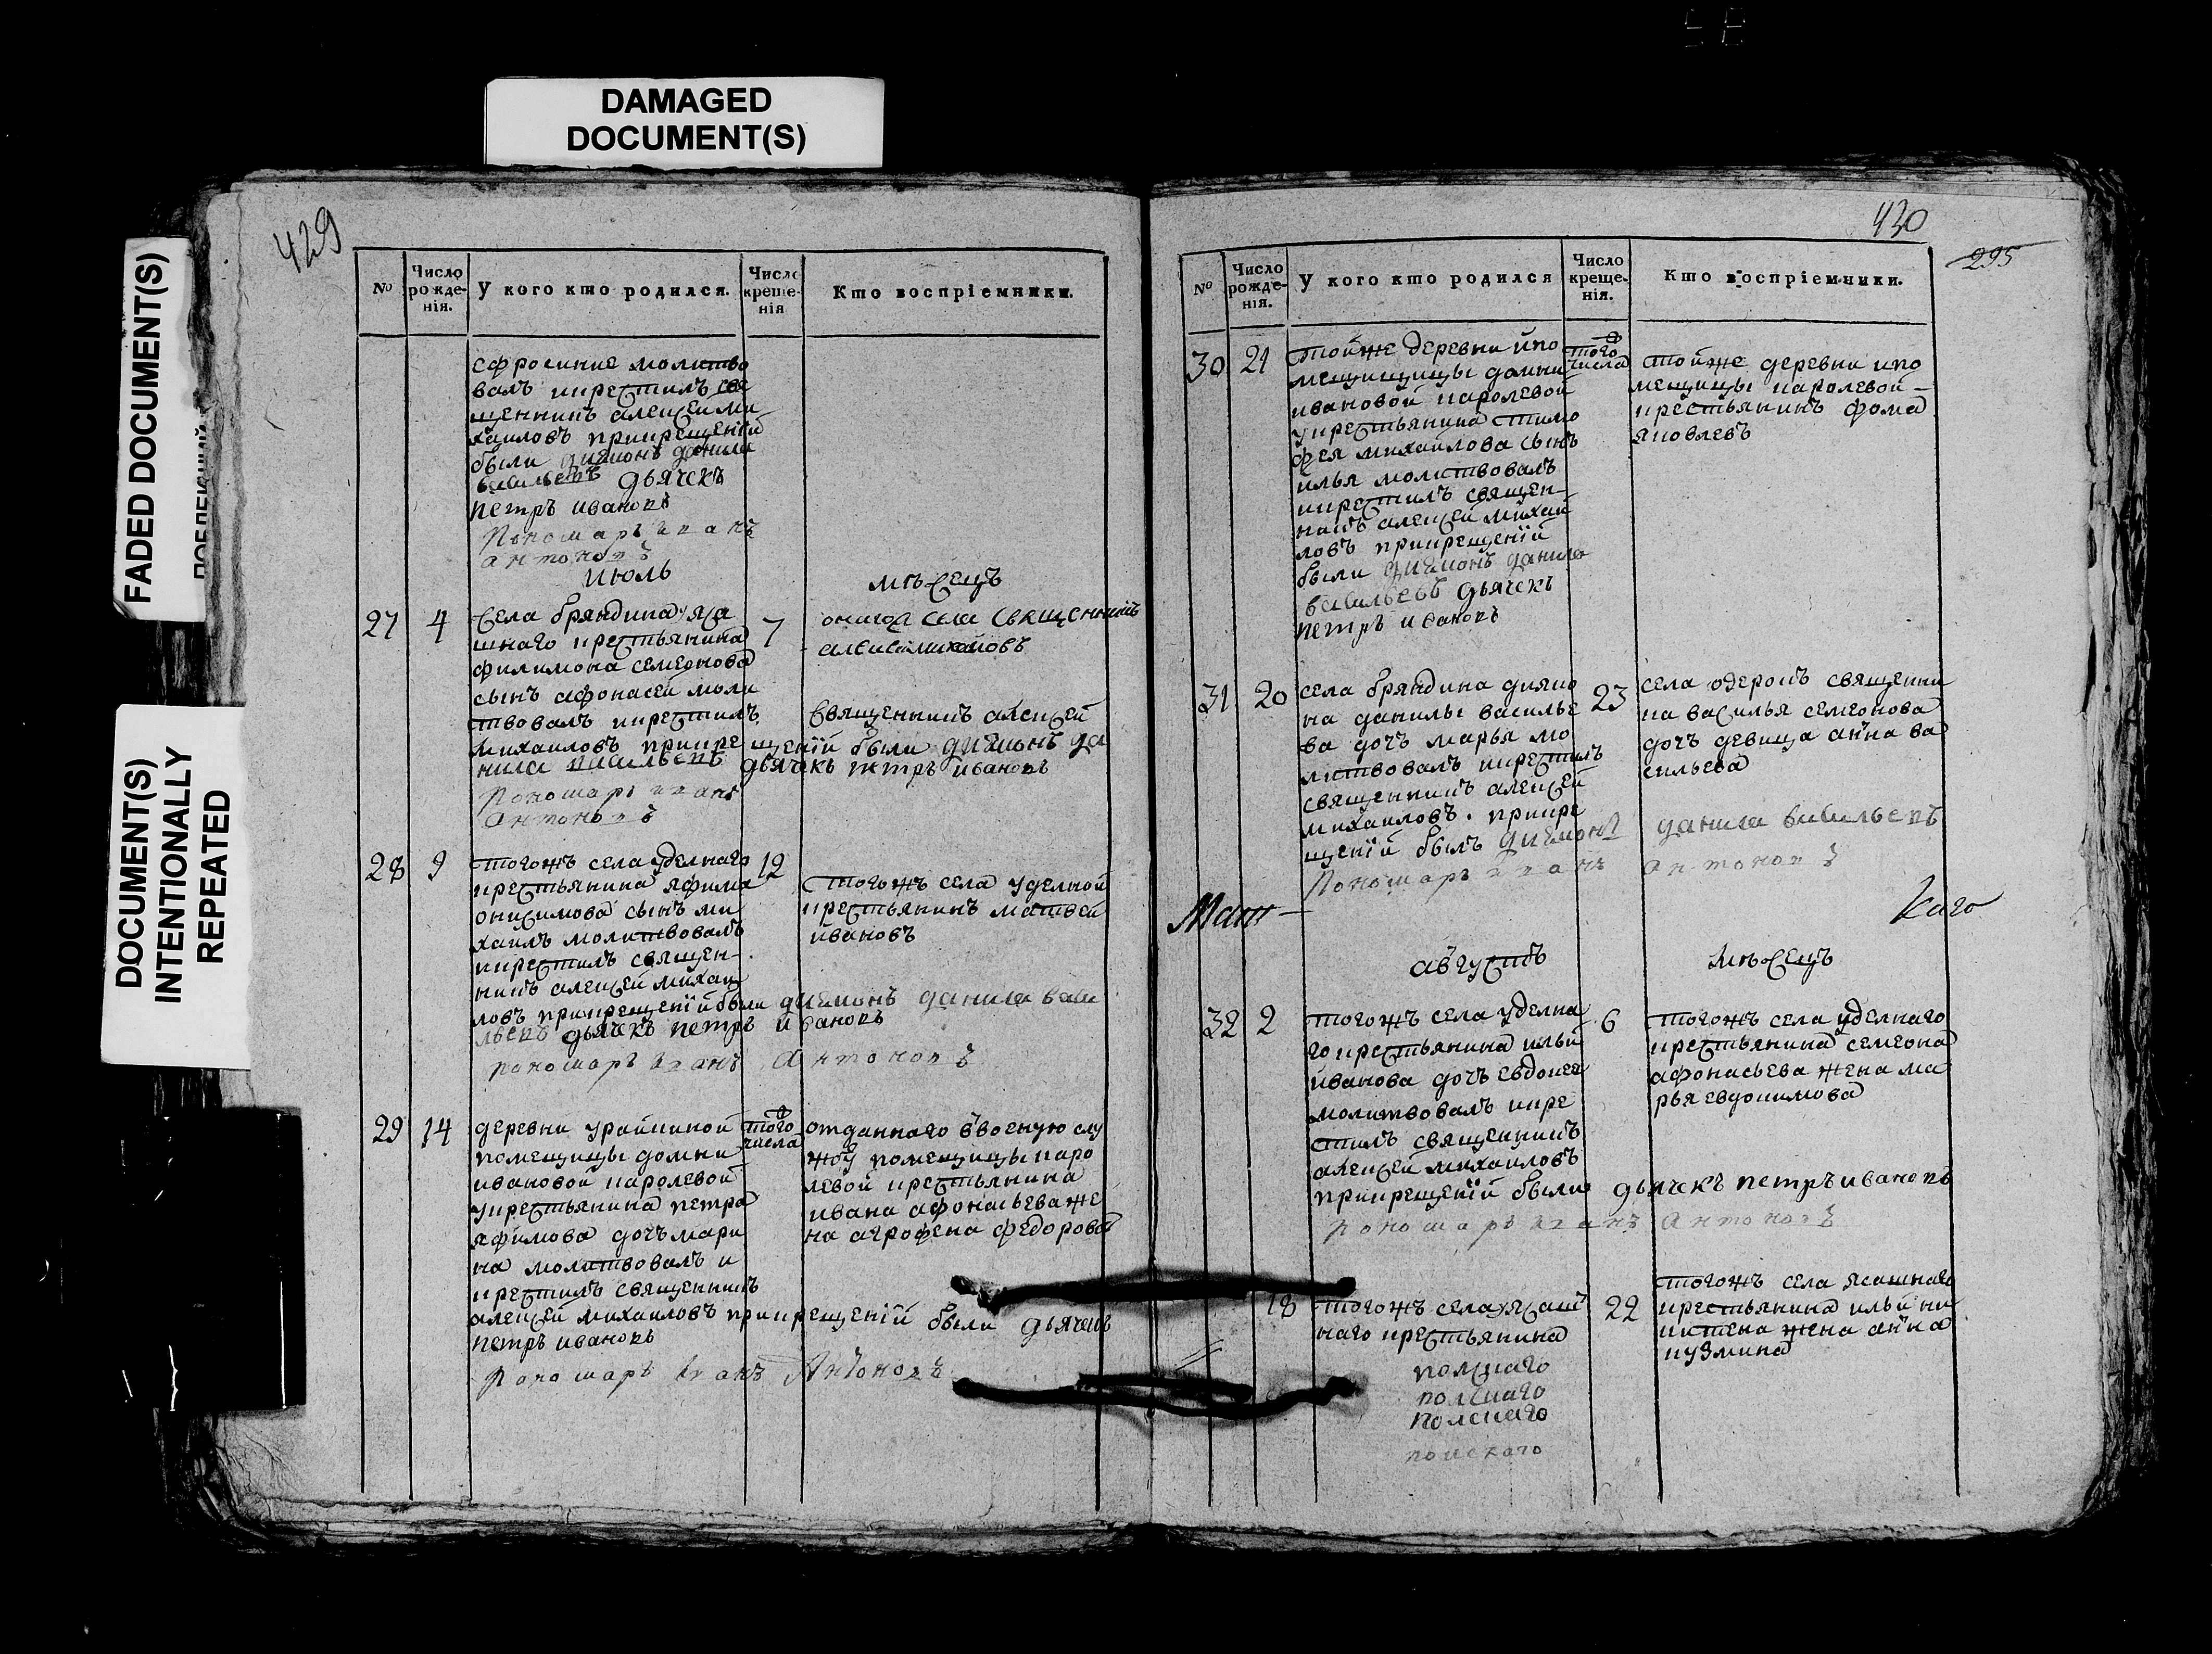 DAMAGED
DOCUMENT(S)
FADED DOCUMENT(S)
DOCUMENT(S)
INTENTIONALLY
REPEATED
429
№
Число рожденія.
У кого кто родился.
Число крещенія
Кто воспріемники.
ефросиние молитво
валъ икрестилъ свя
щенникъ алексей ми
хаиловъ прикрещенiй
были дияконъ данила
васильевъ дьячекъ
петръ ивановъ
Пономарь иванъ
антоновъ
июль мѣсецъ
27 4 7
села бряндина уяса
шнаго крестьянина
филимона семеонова
сынъ афонасей моли
ствовалъ икрестилъ
Священникъ алексей
михаиловъ прикрещенiй были дияконъ да
нила васильевъ дьячекъ петръ ивановъ
Пономарь иванъ
антоновъ
онагож села священникъ
алексей михайловъ
28 9 12
тогожъ села уделнаго
крестьянина яфима
онисимова сынъ ми
хаилъ молитвовалъ
икрестилъ священ-
никъ алексей михаи
ловъ прикрещенiй были дияконъ данила васи
льевъ дьячекъ петръ ивановъ
пономарь иванъ Антоновъ
тогожъ села уделной
крестьянинъ матвей
ивановъ
29 14 того числа
деревни урайкиной
помещицы домни
ивановой каролевой
укрестьянина петра
яфимова дочъ мари
на молитвовалъ и
крестилъ священникъ
алексей михаиловъ прикрещенiй были дьячекъ
петръ ивановъ
Пономарь иванъ Антоновъ
отданнаго ввоенную слу
жбу помещицы каро
левой крестьянина
ивана афонасьева же
на агрофена федорова
430
295
№
Число рожденія.
У кого кто родился
Число крещенія.
Кто воспріемники.
30 21 того числа
тойже деревни ипо
мещищицы домни
ивановой каролевой
укрестьянина тимо
фея михаилова сынъ
илья молитвовалъ
икрестилъ священ-
никъ алексей михаи
ловъ прикрещенiй
были дияконъ данила
васильевъ дьячекъ
петръ ивановъ
тойже деревни ипо
мещицы каролевой
крестьянинъ фома
яковлевъ
31 20 23
села бряндина дияко
на данилы василье
ва дочъ марья мо
литвовалъ икрестилъ
священникъ алексей
михаиловъ. прикре
щенiй былъ диаконъ данила васильевъ
Пономарь иванъ антоновъ
села озерокъ священни
ка василья семеонова
дочъ девица анна ва
сильева
каго
августъ мѣсецъ
32 2 6
тогожъ села уделна
го крестьянина ильи
иванова дочъ евдокея
молитвовалъ икре
стилъ священникъ
алексей михаиловъ
прикрещенiй были дьячекъ петръ ивановъ
пономарь иванъ антоновъ
тогожъ села уделнаго
крестьянина семеона
афонасьева жена ма
рья евдокимова
18 22
тогожъ села уясаш
наго крестьянина
тогожъ села ясашнаго
крестьянина ильи ни
китена жена анна
кузмина